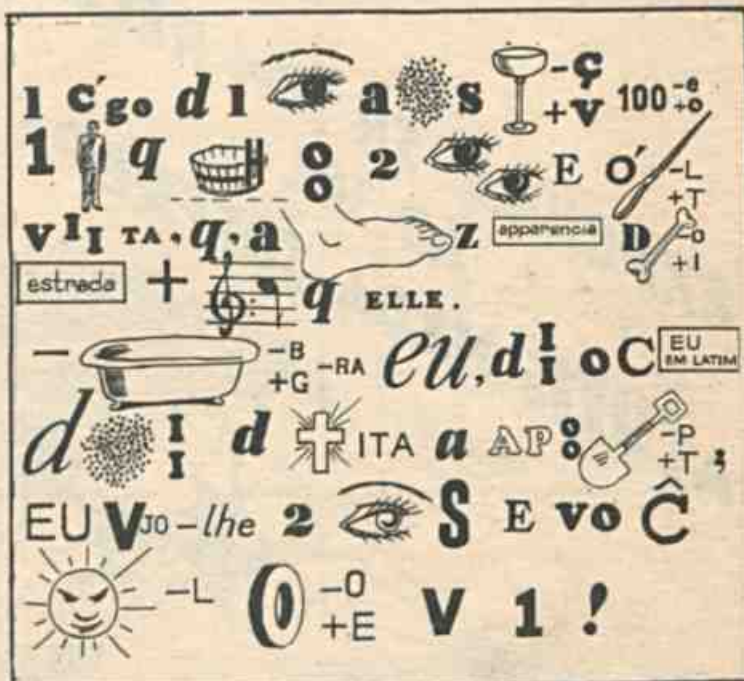 1 c'go d 1 a s -ç +v 100 -e +o
1 q o o 2 E O' -L +T
v I I TA, q, a z apparencia D -o +I
estrada + q ELLE.
- -B +G -RA eu, d I I o C EU EM LATIM
d I I d ITA a AP o o -P +T ;
EU VJO -lhe 2 S E vo Ĉ
-L -O +E V 1 !